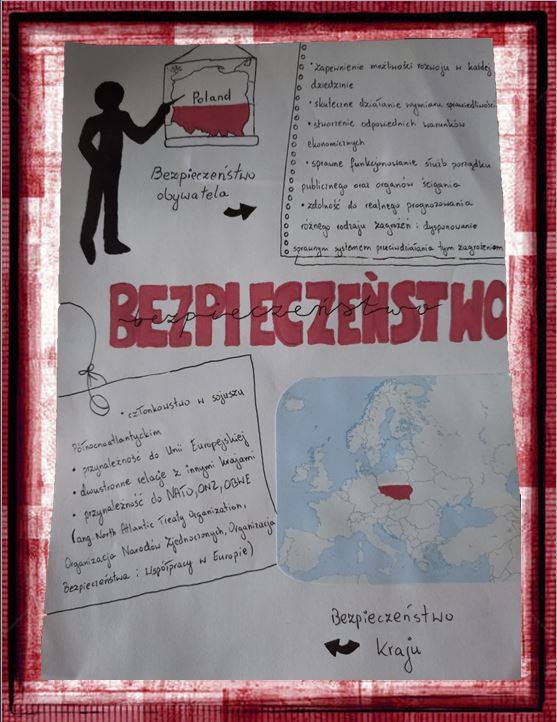 Poland
Bezpieczeństwo
obywatela
• zapewnienie możliwości rozwoju w każdej
dziedzinie
• skuteczne działanie wymiaru sprawiedliwości
• stworzenie odpowiednich warunków
ekonomicznych
• sprawne funkcjonowanie służb porządku
publicznego oraz organów ścigania
• zdolność do realnego prognozowania
różnego rodzaju zagrożeń i dysponowanie
sprawnym systemem przeciwdziałania tym zagrożeniom
BEZPIECZEŃSTWO
bezpieczeństwo
• członkowstwo w sojuszu
Północnoatlantyckim
• przynależność do Unii Europejskiej
• dwustronne relacje z innymi krajami
• przynależność do NATO, ONZ, OBWE
(ang. North Atlantic Treaty Organization,
Organizacja Narodów Zjednoczonych, Organizacja
Bezpieczeństwa i Współpracy w Europie)
Bezpieczeństwo
kraju